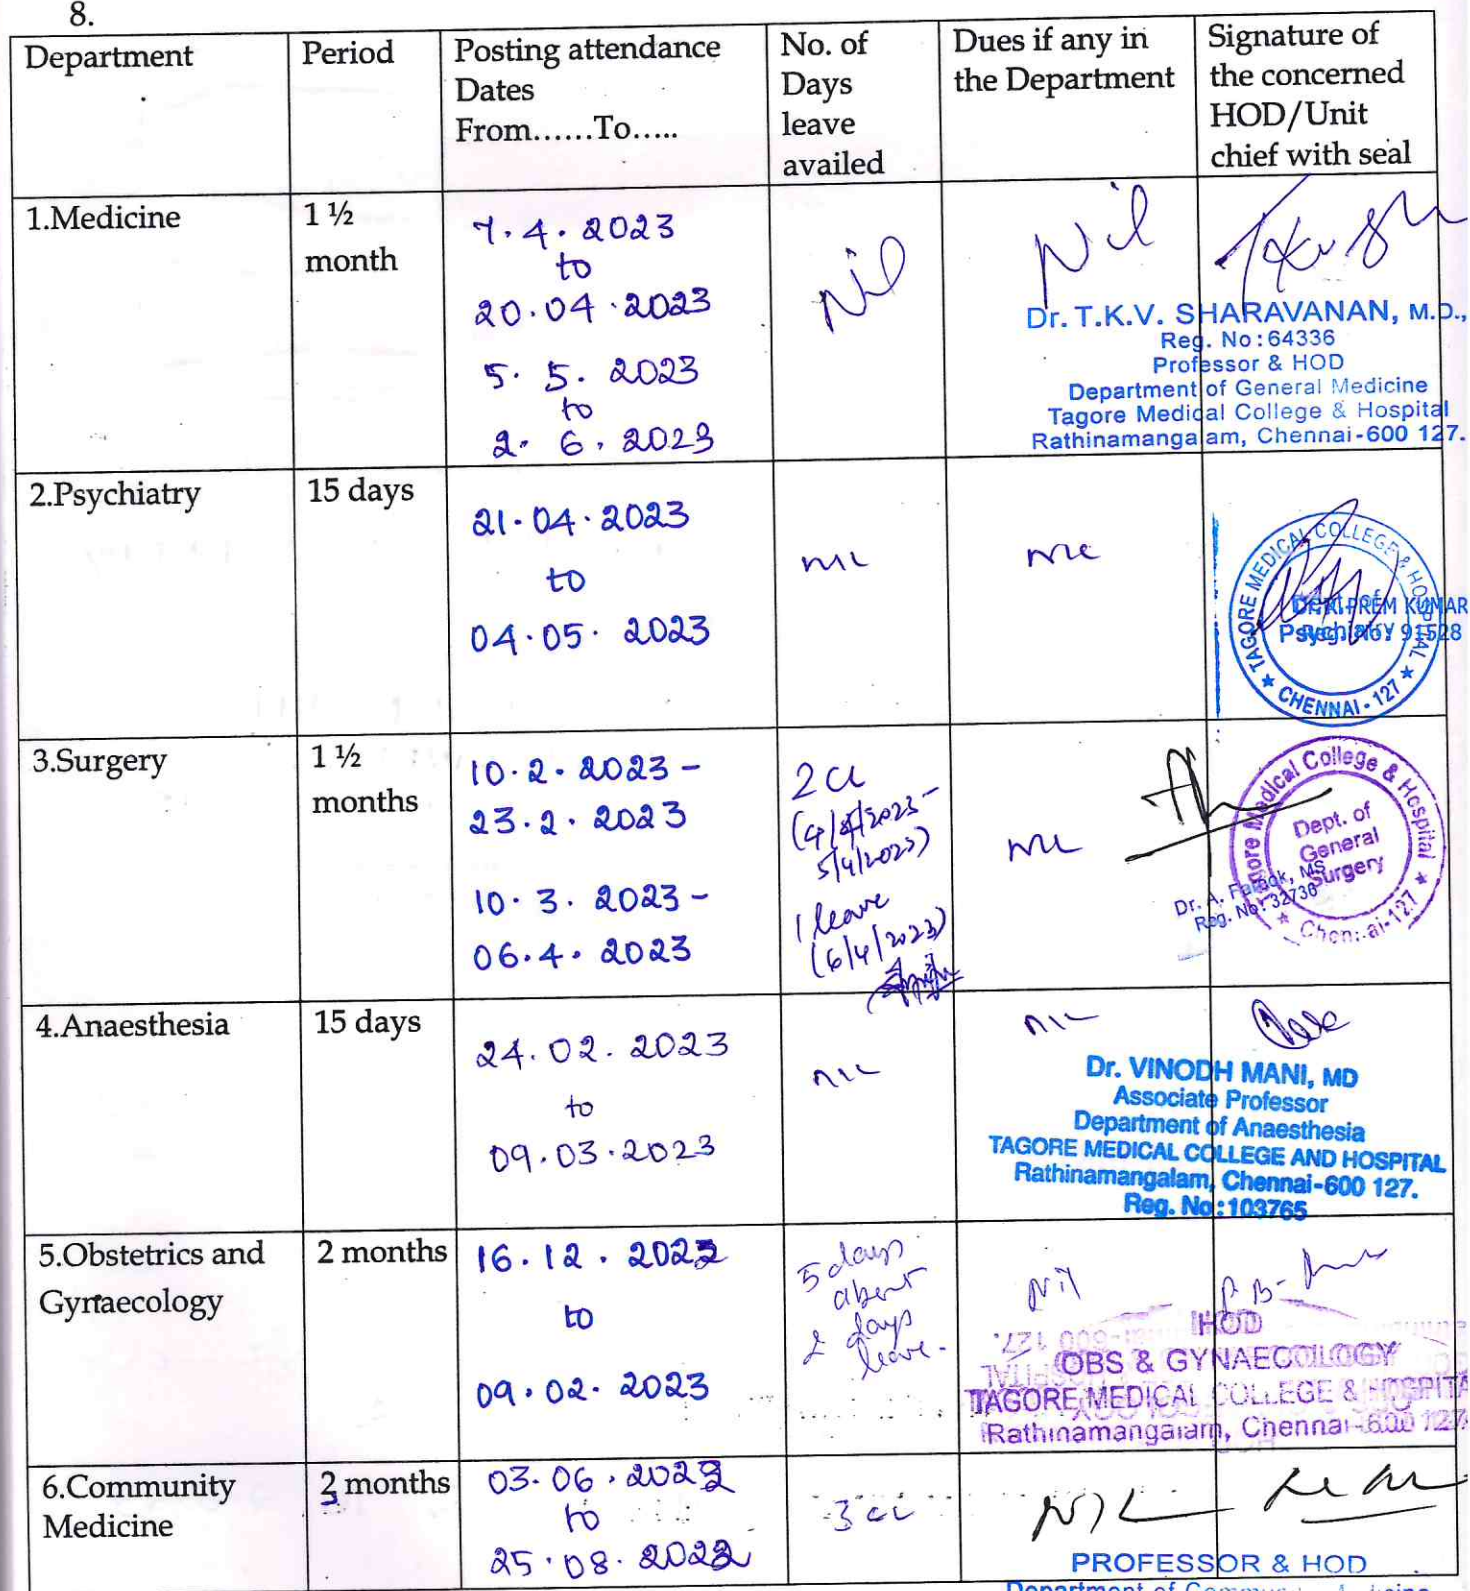 8.
Department
Period
Posting attendance
Dates
From......To.....
No. of
Days
leave
availed
Dues if any in
the Department
Signature of
the concerned
HOD/Unit
chief with seal
1.Medicine
1 ½
month
7.4.2023
to
20.04.2023
5.5.2023
to
2.6.2023
Nil
Nil
Dr. T.K.V. SHARAVANAN, M.D.,
Reg. No:64336
Professor & HOD
Department of General Medicine
Tagore Medical College & Hospital
Rathinamangalam, Chennai-600 127.
2.Psychiatry
15 days
21.04.2023
to
04.05.2023
NIL
NIL
TAGORE MEDICAL COLLEGE & HOSPITAL
PREM KUMAR
Psychiatry
91528
CHENNAI-127
3.Surgery
1 ½
months
10.2.2023-
23.2.2023
10.3.2023-
06.4.2023
2 CL
(4/4/2023-
5/4/2023)
1 leave
(6/4/2023)
NIL
Tagore Medical College & Hospital
Dept. of
General
Surgery
Chennai-127
Dr. A. Farook, MS
Reg. No: 32736
4.Anaesthesia
15 days
24.02.2023
to
09.03.2023
NIL
NIL
Dr. VINODH MANI, MD
Associate Professor
Department of Anaesthesia
TAGORE MEDICAL COLLEGE AND HOSPITAL
Rathinamangalam, Chennai-600 127.
Reg. No:103765
5.Obstetrics and
Gynaecology
2 months
16.12.2022
to
09.02.2023
5 days
absent
2 days
leave.
Nil
HOD
OBS & GYNAECOLOGY
TAGORE MEDICAL COLLEGE & HOSPITA
Rathinamangalam, Chennai-600 127
6.Community
Medicine
3 months
03.06.2023
to
25.08.2023
3 CL
NIL
PROFESSOR & HOD
Department of Community Medicine